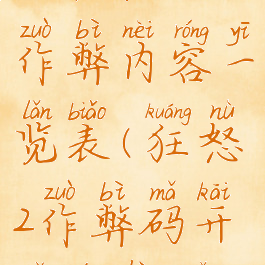 zuò bì nèi róng yī
作弊内容一
lǎn biǎo kuáng nù
览表(狂怒
zuò bì mǎ kāi
2作弊码开